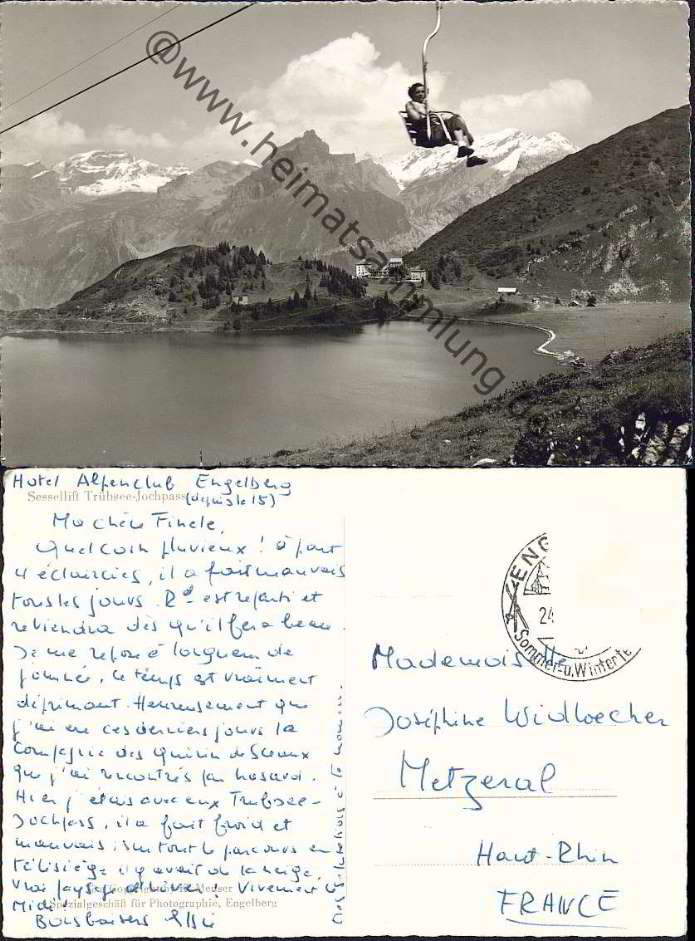 @www.heimatsammlung.de
Hotel Alpenclub Engelberg
Sessellift Trübsee-Jochpass
(depuis le 15)
Ma chère Finele,
Quel coin pluvieux ! à part
4 éclaircies, il a fait mauvais
tous les jours. Rd est reparti et
reviendra dès qu'il fera beau.
Je me repose à longueur de
journée, le temps est vraiment
déprimant. Heureusement que
j'ai eu ces derniers jours la
compagnie des Quirin de Sceaux
que j'ai rencontrés par hasard.
Hier j'étais avec eux Trübsee-
Jochpass, il a fait froid et
mauvais, sur tout le parcours en
télésiège il y avait de la neige,
vrai paysage d'hiver ! Vivement le
Midi !
Meuser
Spezialgeschäft für Photographie, Engelberg
Bons baisers Elsie
à ta maman.
ENG
24
Sommer- u. Winter
Mademoiselle
Joséphine Widloecher
Metzeral
Haut-Rhin
FRANCE